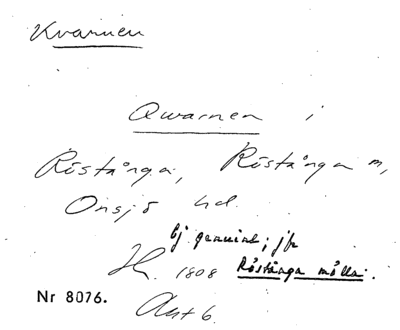 Kvarnen
Qwarnen i
Röstånga, Röstånga m,
Onsjö hd.
Ej genuint; jfr
1808 Röstånga mölla.
Nr 8076.
Akt 6.